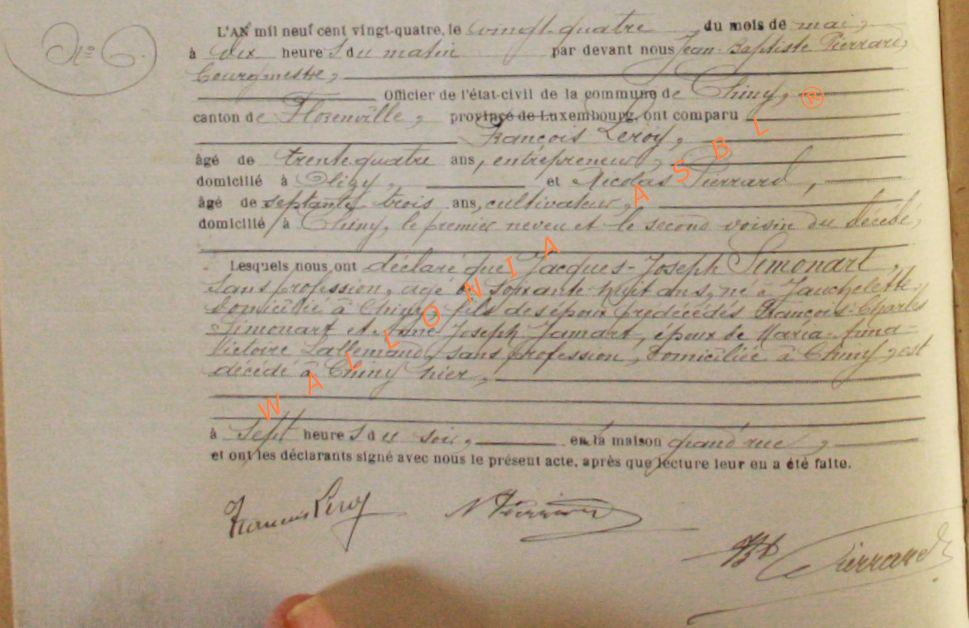 N° 6.
L'AN mil neuf cent vingt-quatre, le vingt-quatre du mois de mai,
à dix heures du matin par devant nous Jean-Baptiste Pierrard,
bourgmestre,
Officier de l'état-civil de la commune de Chiny,
canton de Florenville, province de Luxembourg, ont comparu
François Leroy,
âgé de trente-quatre ans, entrepreneur,
domicilié à Izel, et Nicolas Pierrard,
âgé de septante trois ans, cultivateur,
domicilié à Chiny, le premier neveu et le second voisin du décédé,
Lesquels nous ont déclaré que Jacques-Joseph Simonart,
sans profession, âgé de soixante-huit ans, né à Jauchelette,
domicilié à Chiny, fils des époux prédécédés François-Charles
Simonart et Joseph Jamart, époux de Maria
Victoire Lallemand, sans profession, domiciliée à Chiny, est
décédé à Chiny hier,
à sept heures du soir, en la maison grand'rue,
et ont les déclarants signé avec nous le présent acte, après que lecture leur en a été faite.
François Leroy N Pierrard
JBt Pierrard
WALLONIA ASBL ®